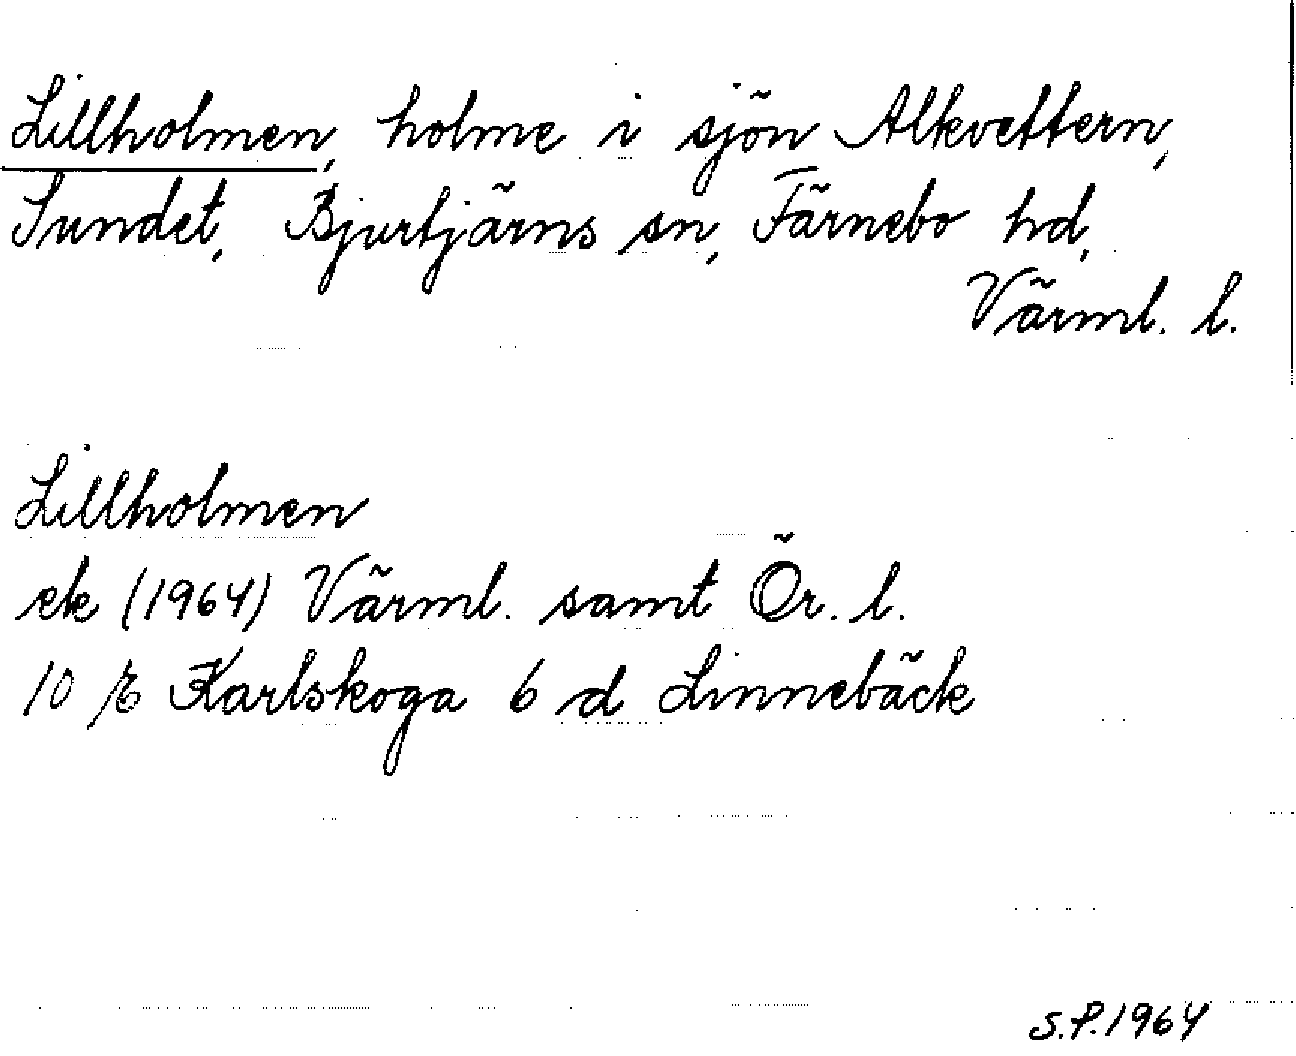 Lillholmen, holme i sjön Alkvettern,
Sundet, Bjurtjärns sn, Färnebo hd,
Värml. l.
Lillholmen
ek (1964) Värml. samt Ör. l.
10 E Karlskoga 6 d Linnebäck
S.P. 1964